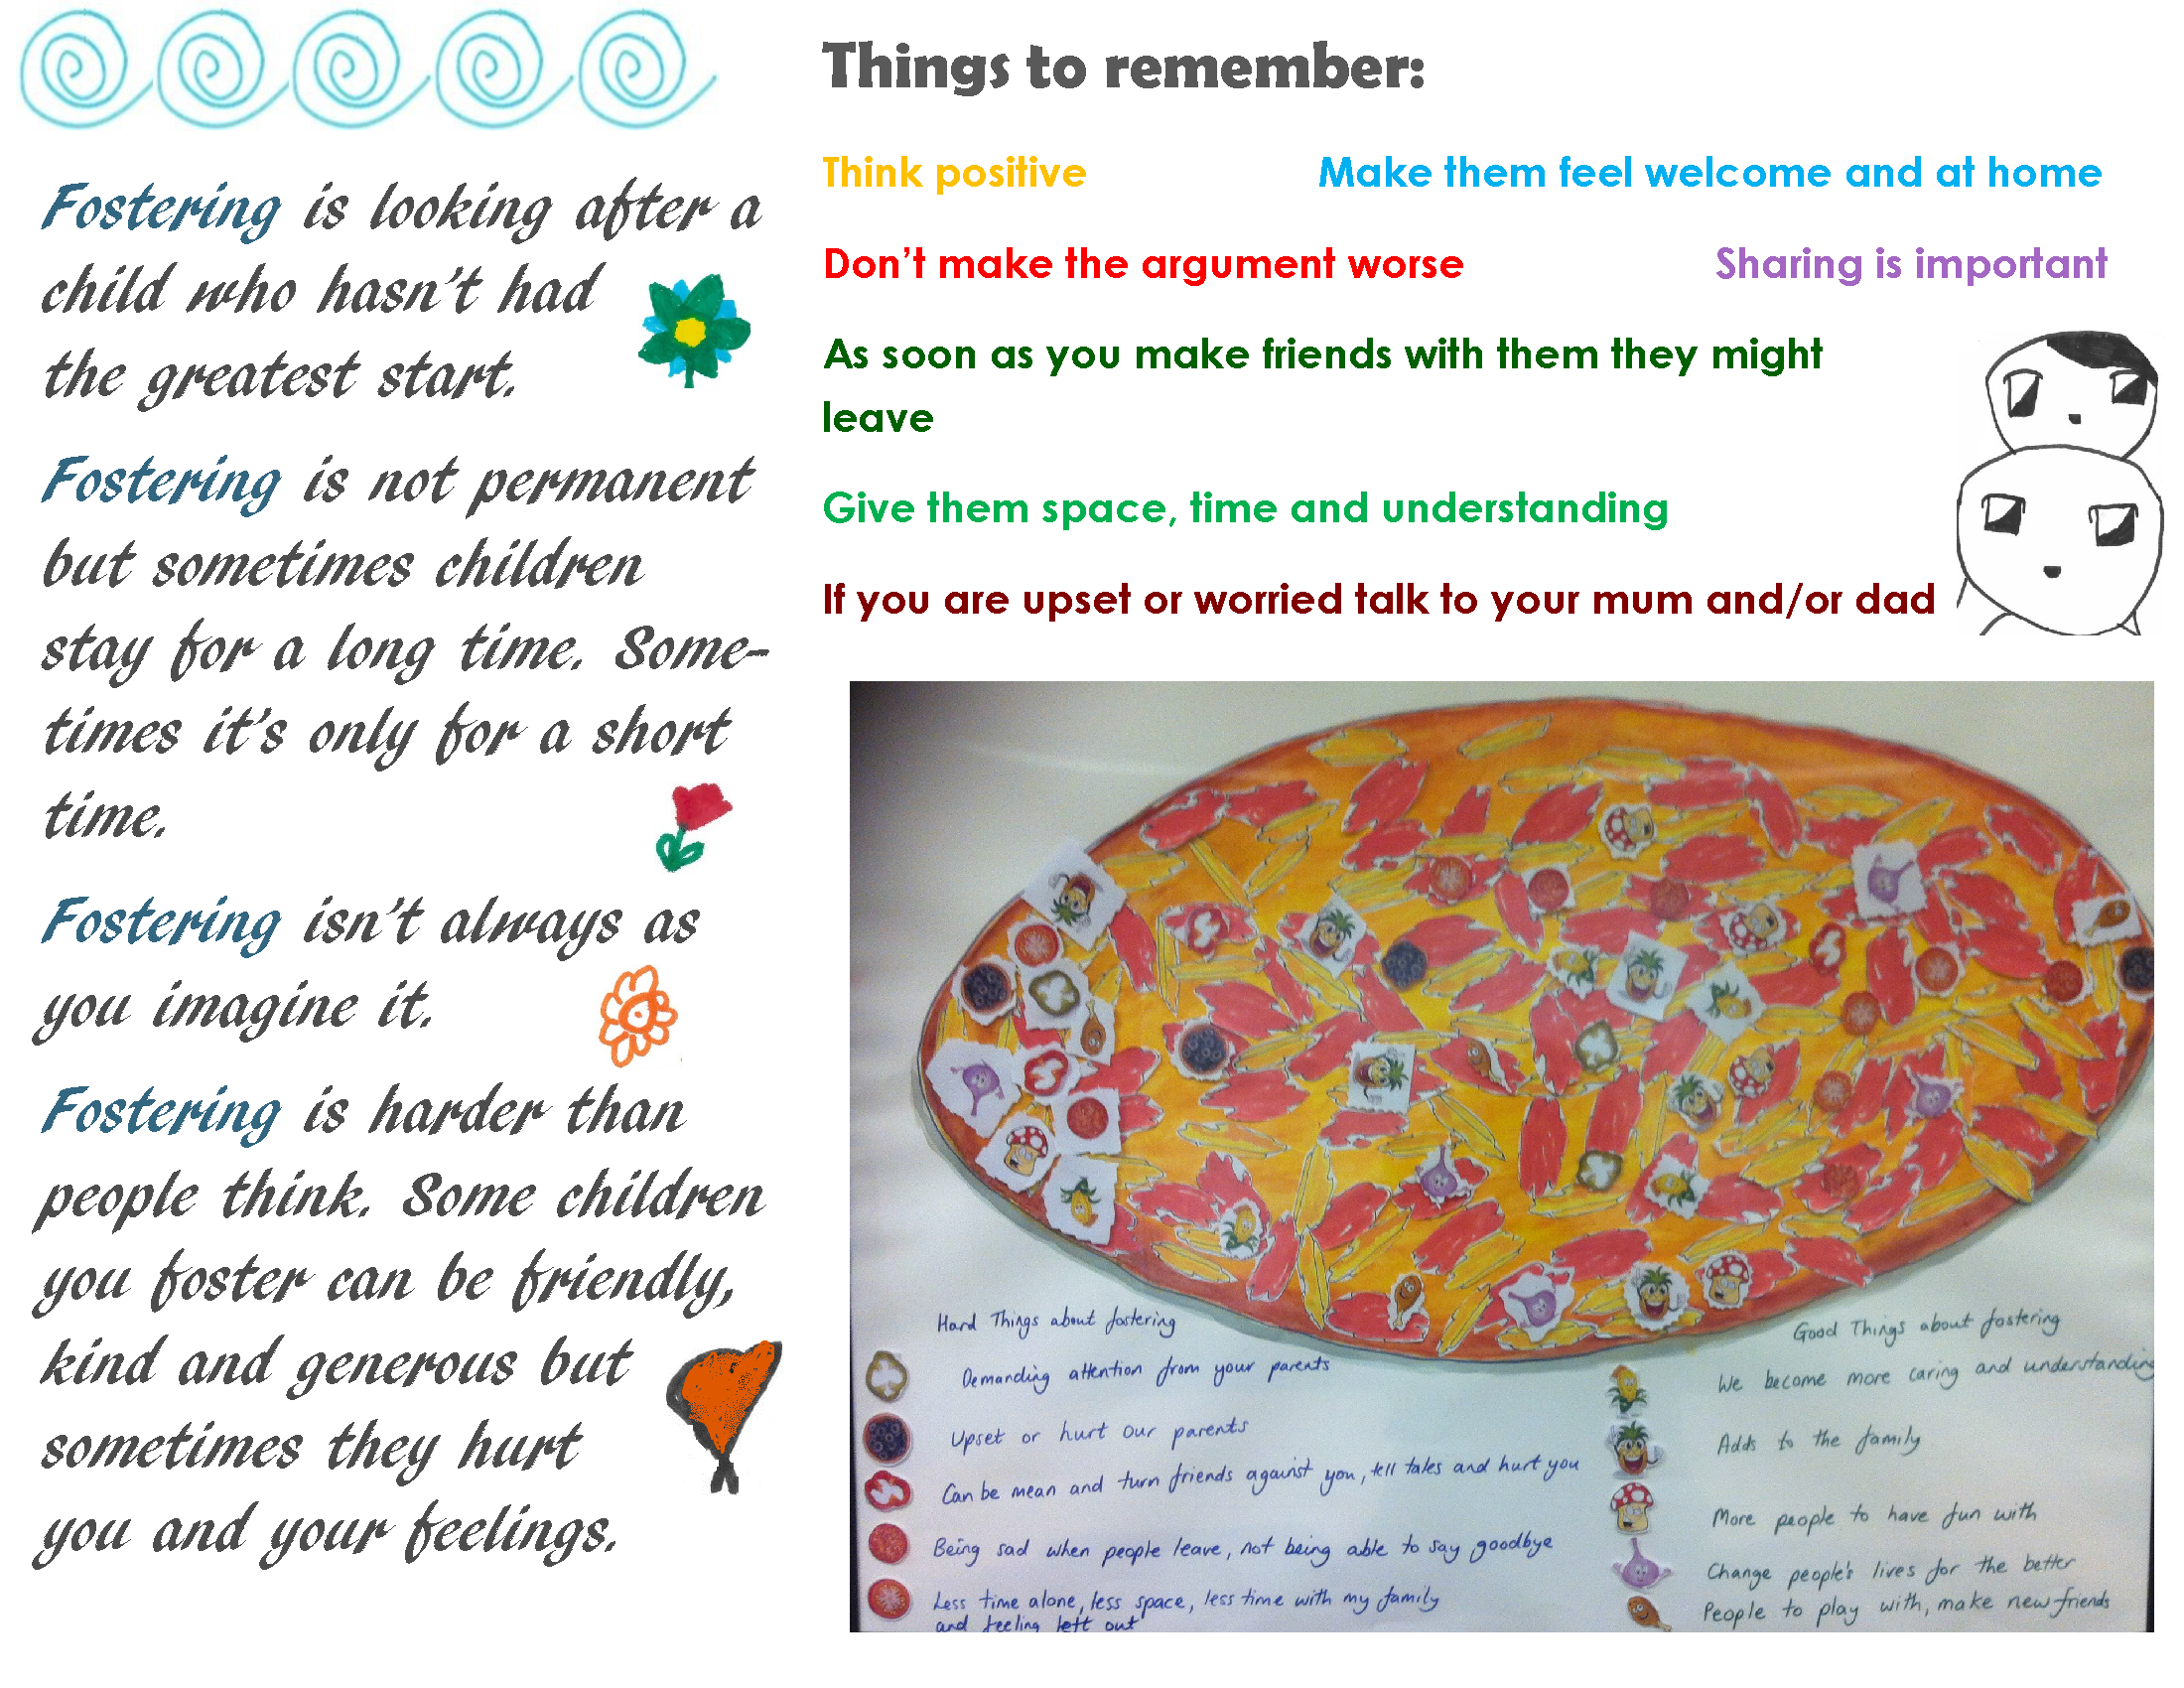 Fostering is looking after a
child who hasn't had
the greatest start.
Fostering is not permanent
but sometimes children
stay for a long time. Some-
times it's only for a short
time.
Fostering isn't always as
you imagine it.
Fostering is harder than
people think. Some children
you foster can be friendly,
kind and generous but
sometimes they hurt
you and your feelings.
Things to remember:
Think positive
Make them feel welcome and at home
Don't make the argument worse
Sharing is important
As soon as you make friends with them they might
leave
Give them space, time and understanding
If you are upset or worried talk to your mum and/or dad
Hard Things about fostering
Demanding attention from your parents
Upset or hurt our parents
Can be mean and turn friends against you, tell tales and hurt you
Being sad when people leave, not being able to say goodbye
Less time alone, less space, less time with my family
and feeling left out
Good Things about fostering
We become more caring and understanding
Adds to the family
More people to have fun with
Change people's lives for the better
People to play with, make new friends